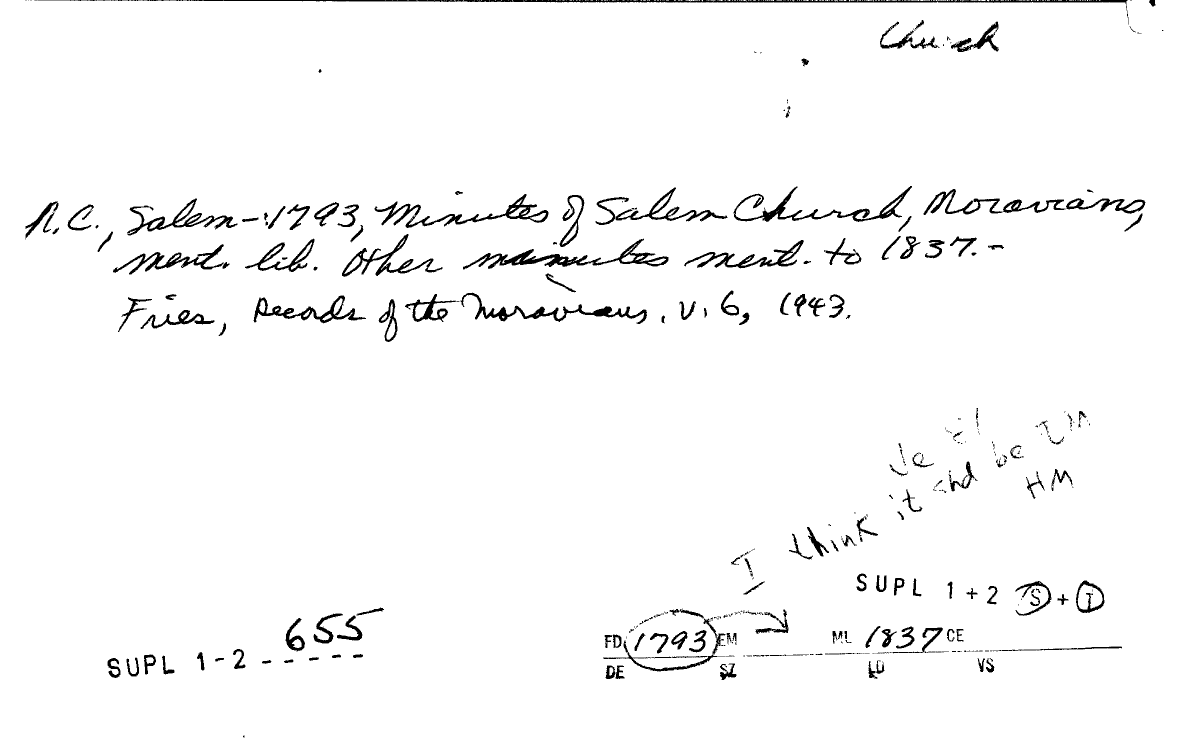 Church
N.C., Salem - 1793, Minutes of Salem Church, Moravians,
ment. lib. Other minutes ment. to 1837. -
Fries, Records of the Moravians, v. 6, 1943.
I think it shd be EM
HM
SUPL 1+2 S + I
655
SUPL 1-2 -----
FD 1793 EM ML 1837 CE
DE SZ LD VS